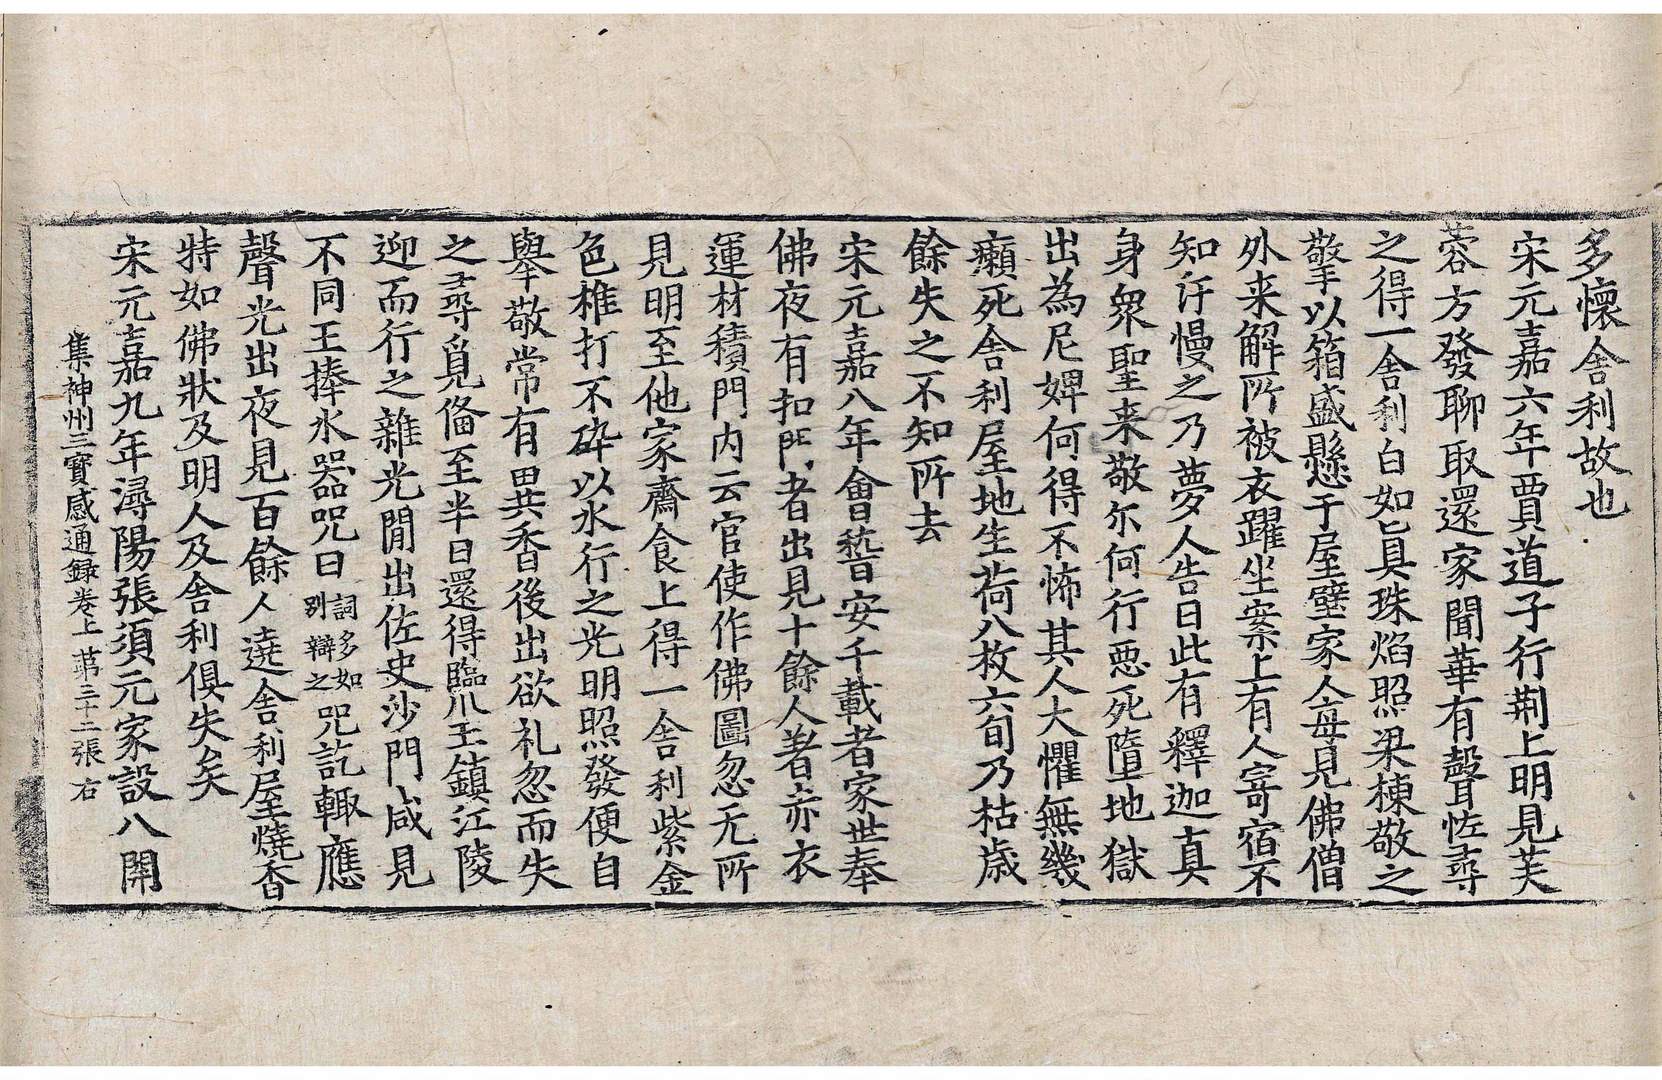 多懷舍利故也
宋元嘉六年賈道子行荆上明見芙
蓉方發聊取還家聞華有聲恠尋
之得一舍利白如真珠焰照梁棟敬之
擎以箱盛懸于屋壁家人每見佛僧
外来解所被衣躍坐案上有人寄宿不
知汙慢之乃夢人告曰此有釋迦真
身衆聖来敬尒何行惡死墮地獄
出為尼婢何得不怖其人大懼無幾
癩死舍利屋地生荷八枚六旬乃枯歳
餘失之不知所去
宋元嘉八年會嵇安千載者家世奉
佛夜有扣門者出見十餘人著赤衣
運材積門内云官使作佛圖忽无所
見明至他家齋食上得一舍利紫金
色椎打不碎以水行之光明照發便自
舉敬常有異香後出欲礼忽而失
之尋覓俻至半日還得臨川王鎮江陵
迎而行之雜光閒出佐史沙門咸見
不同王捧水器呪曰詞多如別辯之呪訖輙應
聲光出夜見百餘人遶舍利屋燒香
特如佛狀及明人及舍利俱失矣
宋元嘉九年潯陽張須元家設八開
集神州三寳感通録卷上 苐三十二張 右